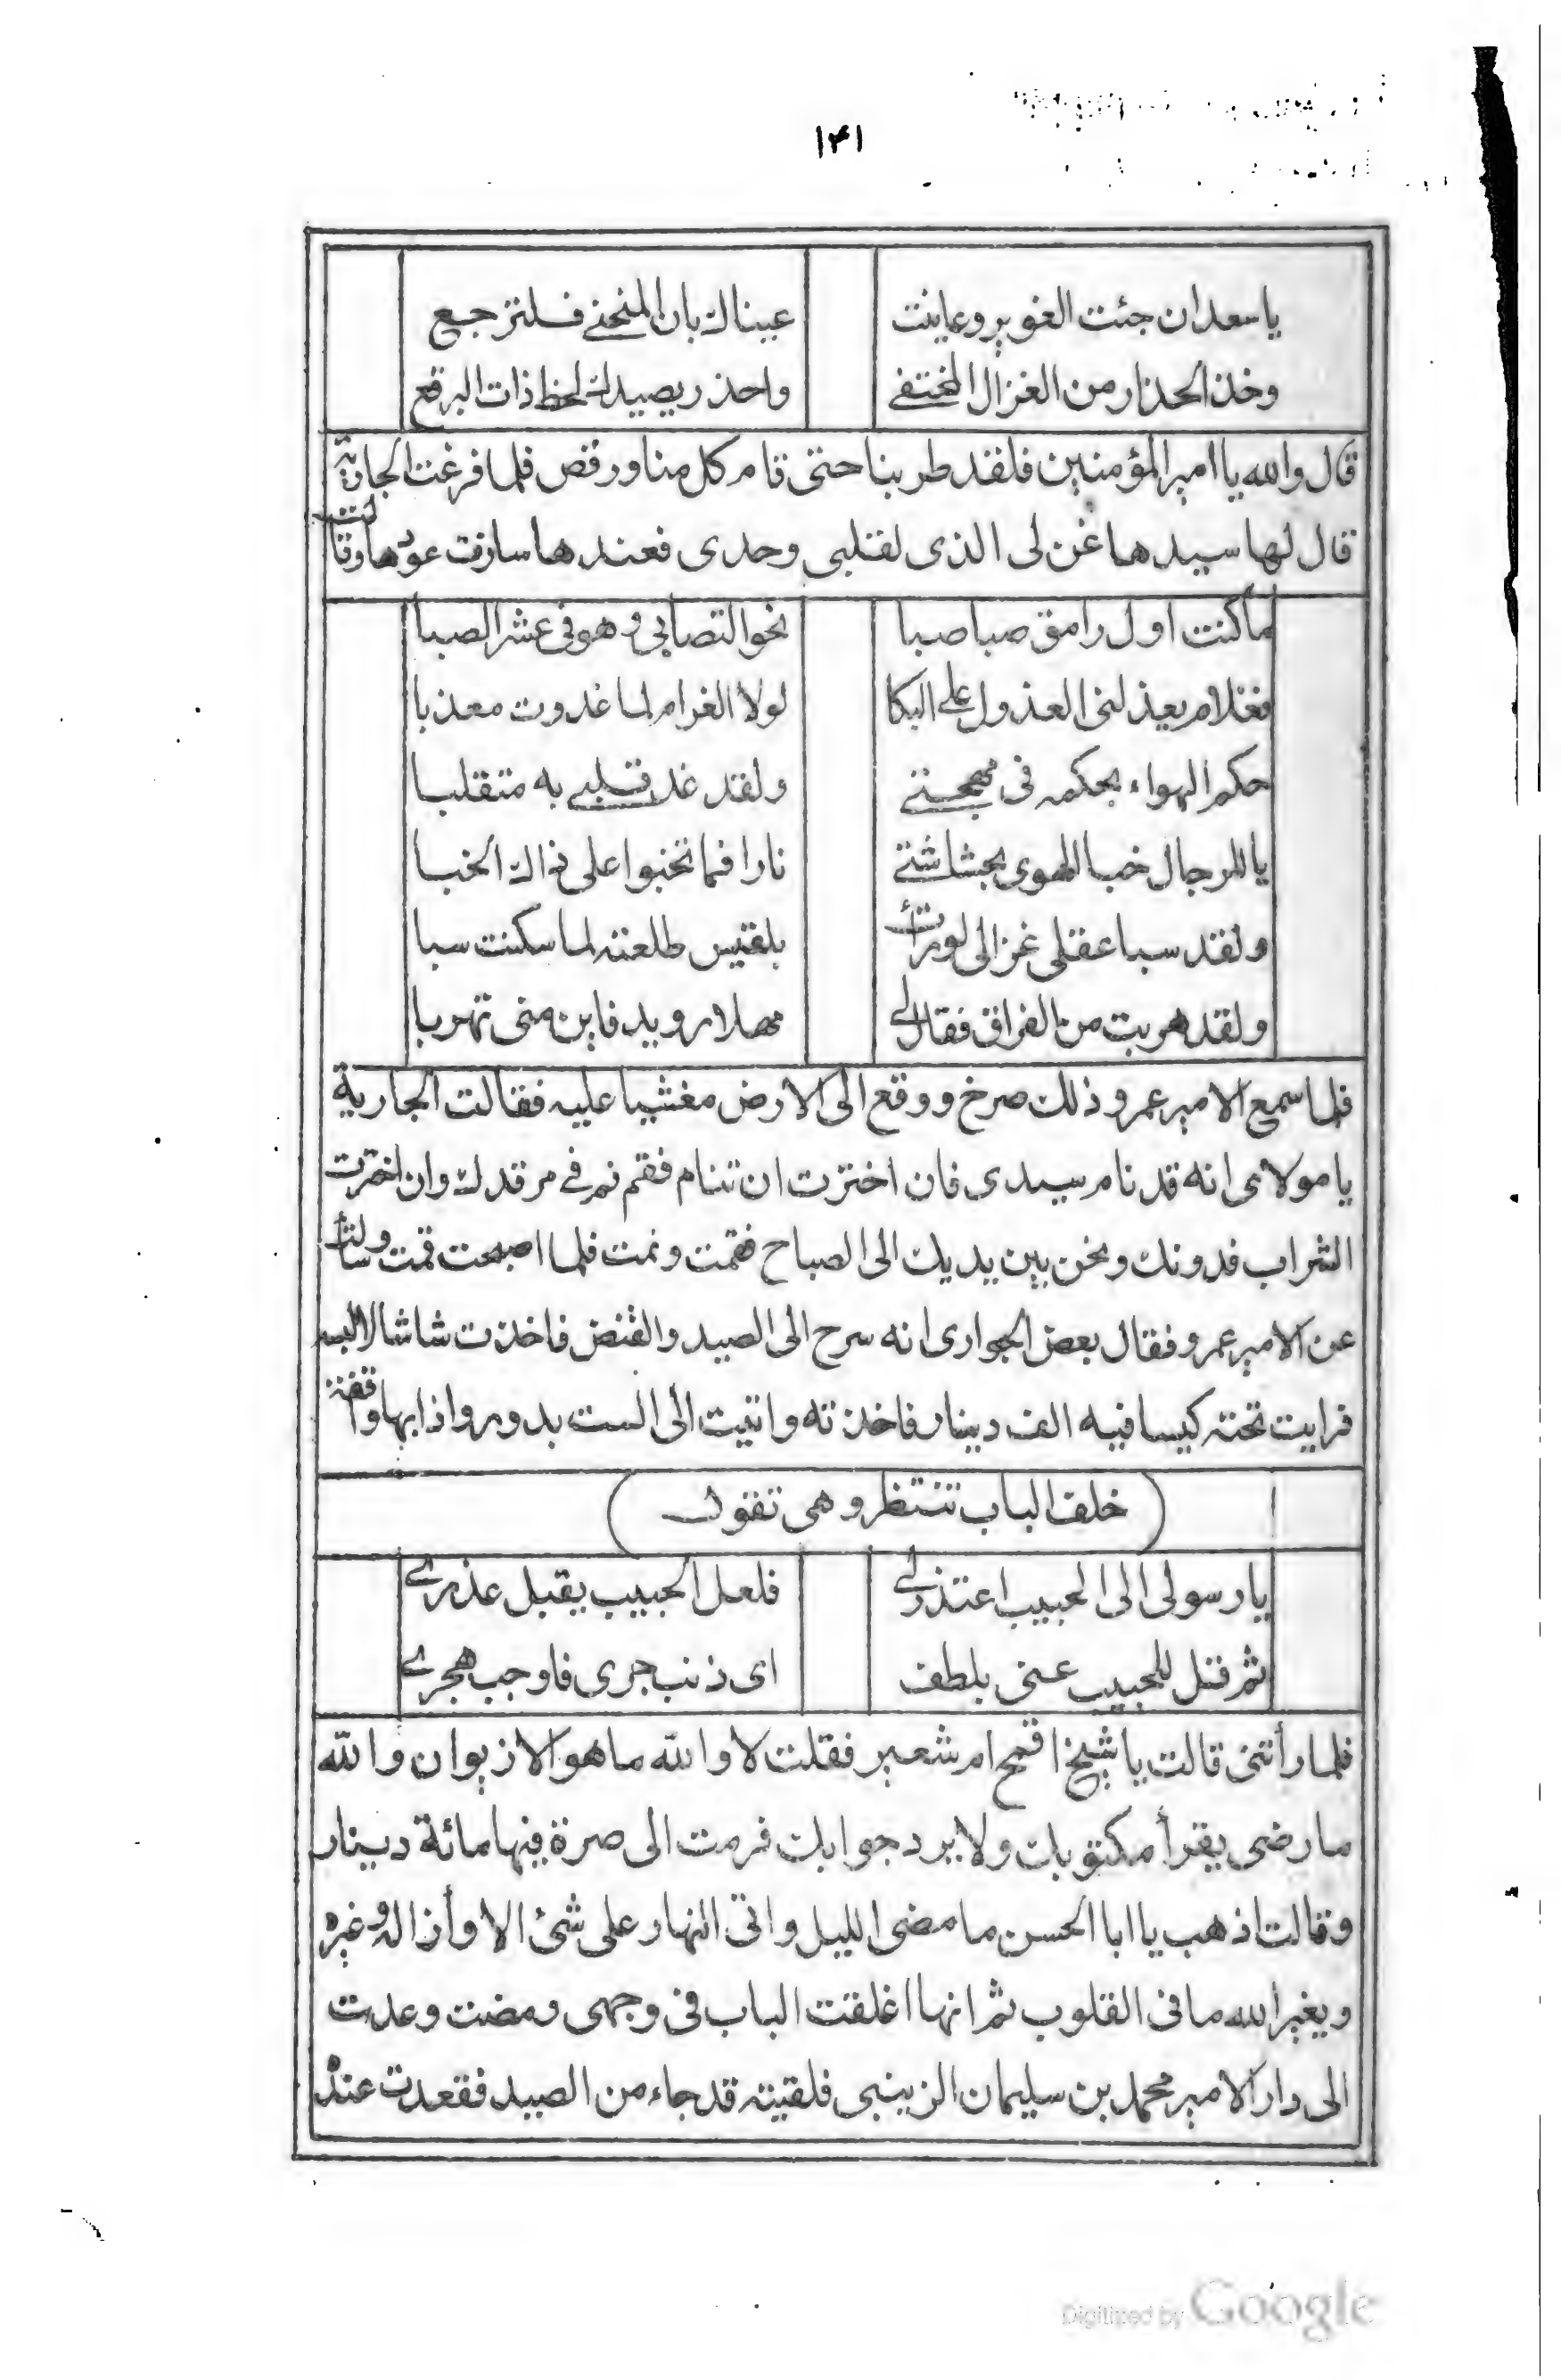 ١٤١
ياسعد ان جئت الغوير وعاينت عيناك بان المنحنى فلترجع
وخذ الحذار من الغزال المختفى واحذر يصيدك لحظ ذات البرقع
قال والله يا امير المؤمنين فلقد طربنا حتى قام كل منا ورقص فلما فرغت الجارية
قال لها سيدها غن لى الذى لقلبى وحدى فعندها ساوت عودها وقالت
ما كنت اول رامق صبا صبا نحو التصابى وهو فى عشر الصبا
فغلام يعذلنى العذول على البكا لولا الغرام لما غدوت معذبا
حكم الهواء بحكمه فى مهجتى ولقد غد قلبى به متقلبا
يا للرجال خبا الهوى بحشاشتى نارا فما تخبوا على ذاك الخبا
ولقد سبا عقلى غزالى لورات بلقيس طلعته لما سكنت سبا
ولقد هربت من الفراق فقال لى مهلا رويد فاين منى تهربا
فلما سمع الامير عمرو ذلك صرخ ووقع الى الارض مغشيا عليه فقالت الجارية
يا مولاى انه قد نام سيدى فان اخترت ان تنام فقم نم فى مرقدك وان اخترت
الشراب فدونك ونحن بين يديك الى الصباح فقمت ونمت فلما اصبحت قمت وسالت
عن الامير عمرو فقال بعض الجوارى انه سرح الى الصيد والقنص فاخذت شاشا لالبسه
فرايت تحته كيسا فيه الف دينار فاخذته واتيت الى الست بدور واذا بها واقفة
(خلف الباب تنتظر وهى تقول)
يا رسولى الى الحبيب اعتذر لى فلعل الحبيب يقبل عذرى
ثم قل للحبيب عنى بلطف اى ذنب جرى فاوجب هجرى
فلما رأتنى قالت يا شيخ اقمح ام شعير فقلت لا والله ما هو الا زيوان والله
ما رضى يقرأ مكتوبك ولا يرد جوابك فرمت الى صرة فيها مائة دينار
وقالت اذهب يا ابا الحسن ما مضى الليل واتى النهار على شئ الا وأزاله وغيره
ويغير الله ما فى القلوب ثم انها اغلقت الباب فى وجهى ومضت وعدت
الى دار الامير محمد بن سليمان الزينبى فلقيته قد جاء من الصيد فقعدت عنده
Digitized by Google